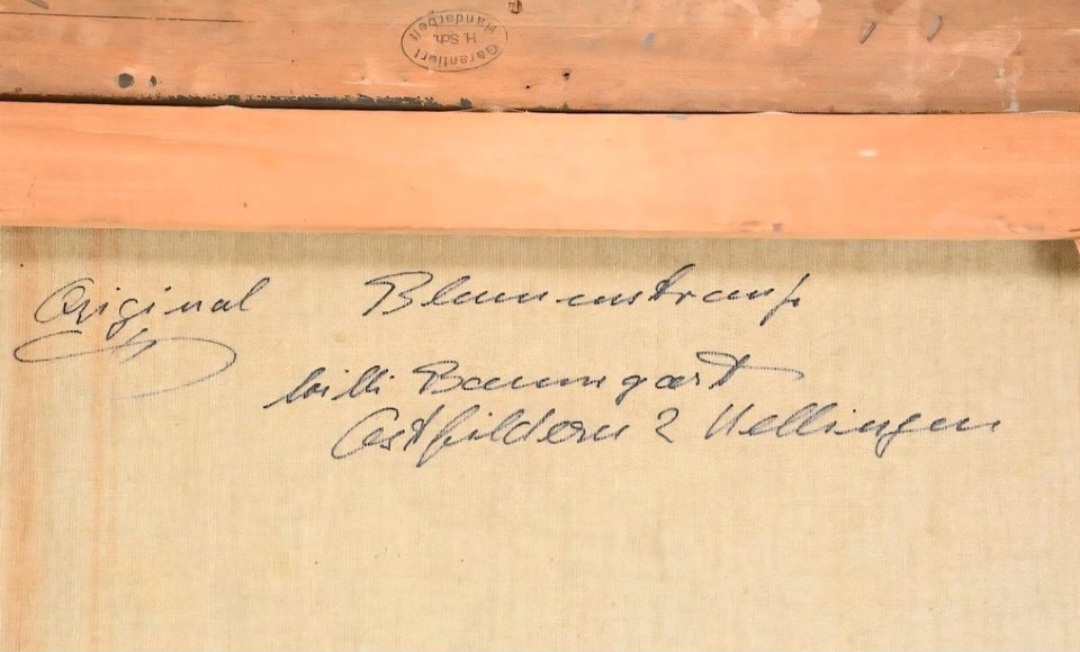 Garantiert
H. Sch.
Handarbeit
Original Blumenstrauß
Willi Baumgart
Ostfildern 2 Nellingen